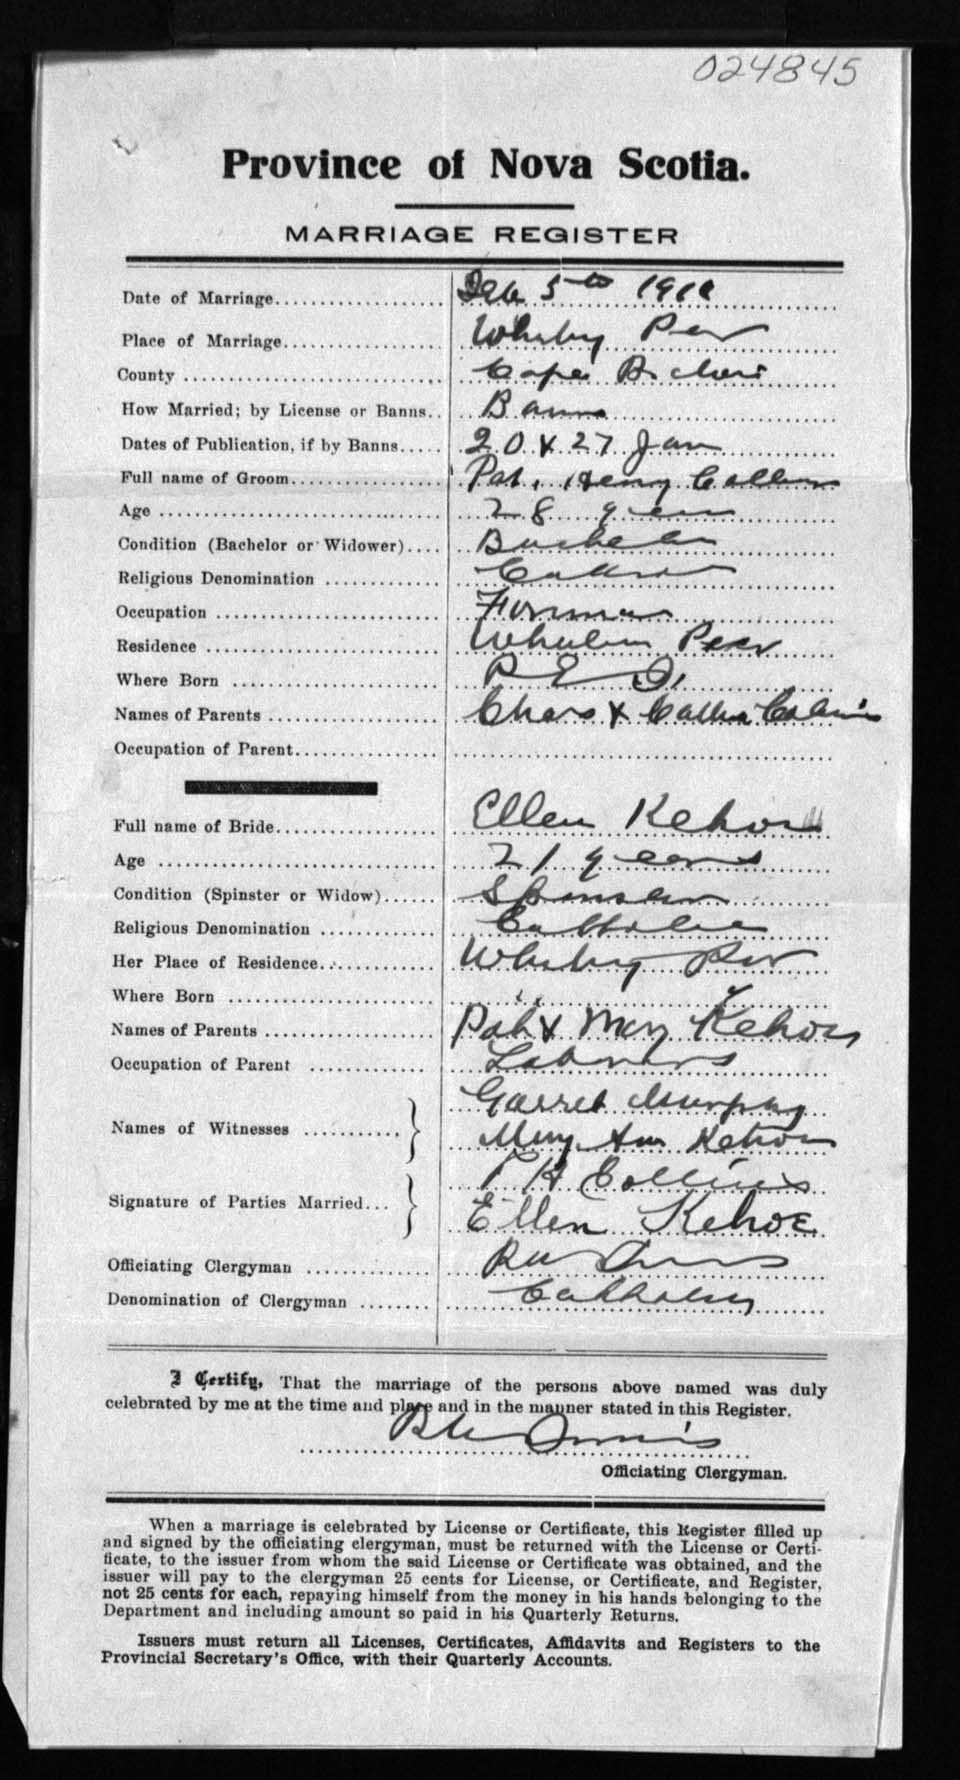 024845
Province of Nova Scotia.
MARRIAGE REGISTER
Date of Marriage Feb 5th
Place of Marriage Whitney Pier
County Cape Breton
How Married; by License or Banns Banns
Dates of Publication, if by Banns 20 & 27 Jan
Full name of Groom Pat. Henry Collins
Age 28 years
Condition (Bachelor or Widower) Bachelor
Religious Denomination Catholic
Occupation
Residence Whitney Pier
Where Born P E I.
Names of Parents Chas & Collins
Occupation of Parent
Full name of Bride Ellen Kehoe
Age 21 years
Condition (Spinster or Widow) Spinster
Religious Denomination Catholic
Her Place of Residence Whitney Pier
Where Born " "
Names of Parents Pat & Mary Kehoe
Occupation of Parent
Names of Witnesses Garret Murphy
Mary Ann Kehoe
Signature of Parties Married P H Collins
Ellen Kehoe
Officiating Clergyman
Denomination of Clergyman
I Certify, That the marriage of the persons above named was duly
celebrated by me at the time and place and in the manner stated in this Register.
Officiating Clergyman.
When a marriage is celebrated by License or Certificate, this Register filled up
and signed by the officiating clergyman, must be returned with the License or Certi-
ficate, to the issuer from whom the said License or Certificate was obtained, and the
issuer will pay to the clergyman 25 cents for License, or Certificate, and Register,
not 25 cents for each, repaying himself from the money in his hands belonging to the
Department and including amount so paid in his Quarterly Returns.
Issuers must return all Licenses, Certificates, Affidavits and Registers to the
Provincial Secretary's Office, with their Quarterly Accounts.